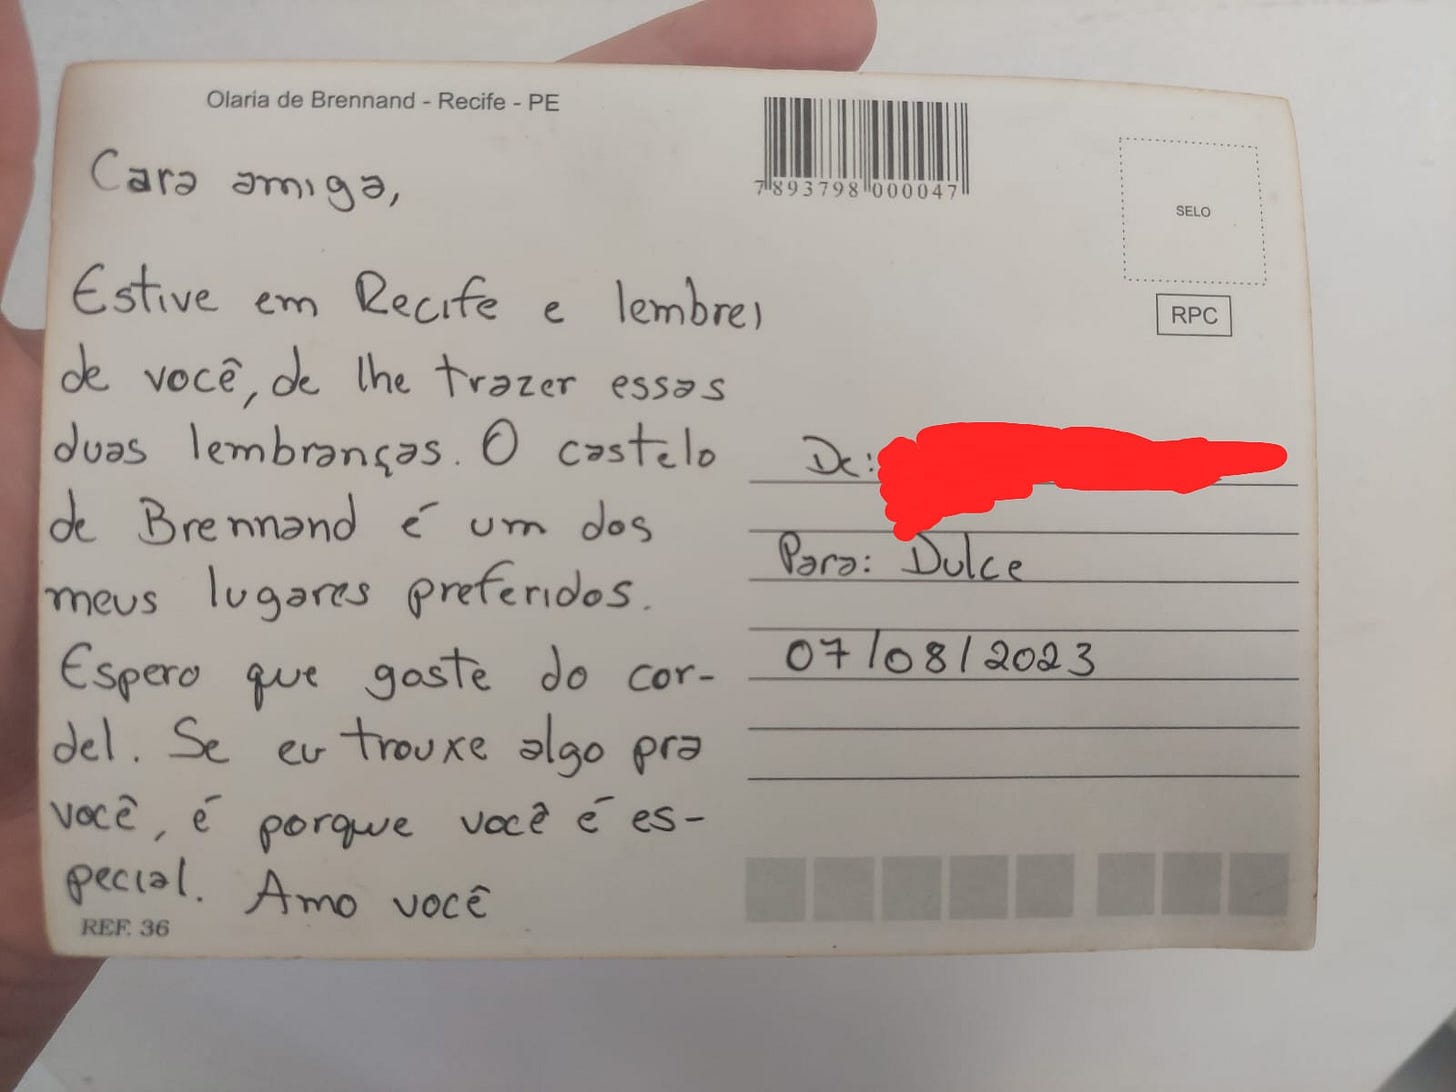 Olaria de Brennand - Recife - PE
7893798000047
SELO
RPC
Cara amiga,
Estive em Recife e lembrei
de você, de lhe trazer essas
duas lembranças. O castelo
de Brennand é um dos
meus lugares preferidos.
Espero que goste do cor-
del. Se eu trouxe algo pra
você, é porque você é es-
pecial. Amo você
REF. 36
De:
Para: Dulce
07/08/2023